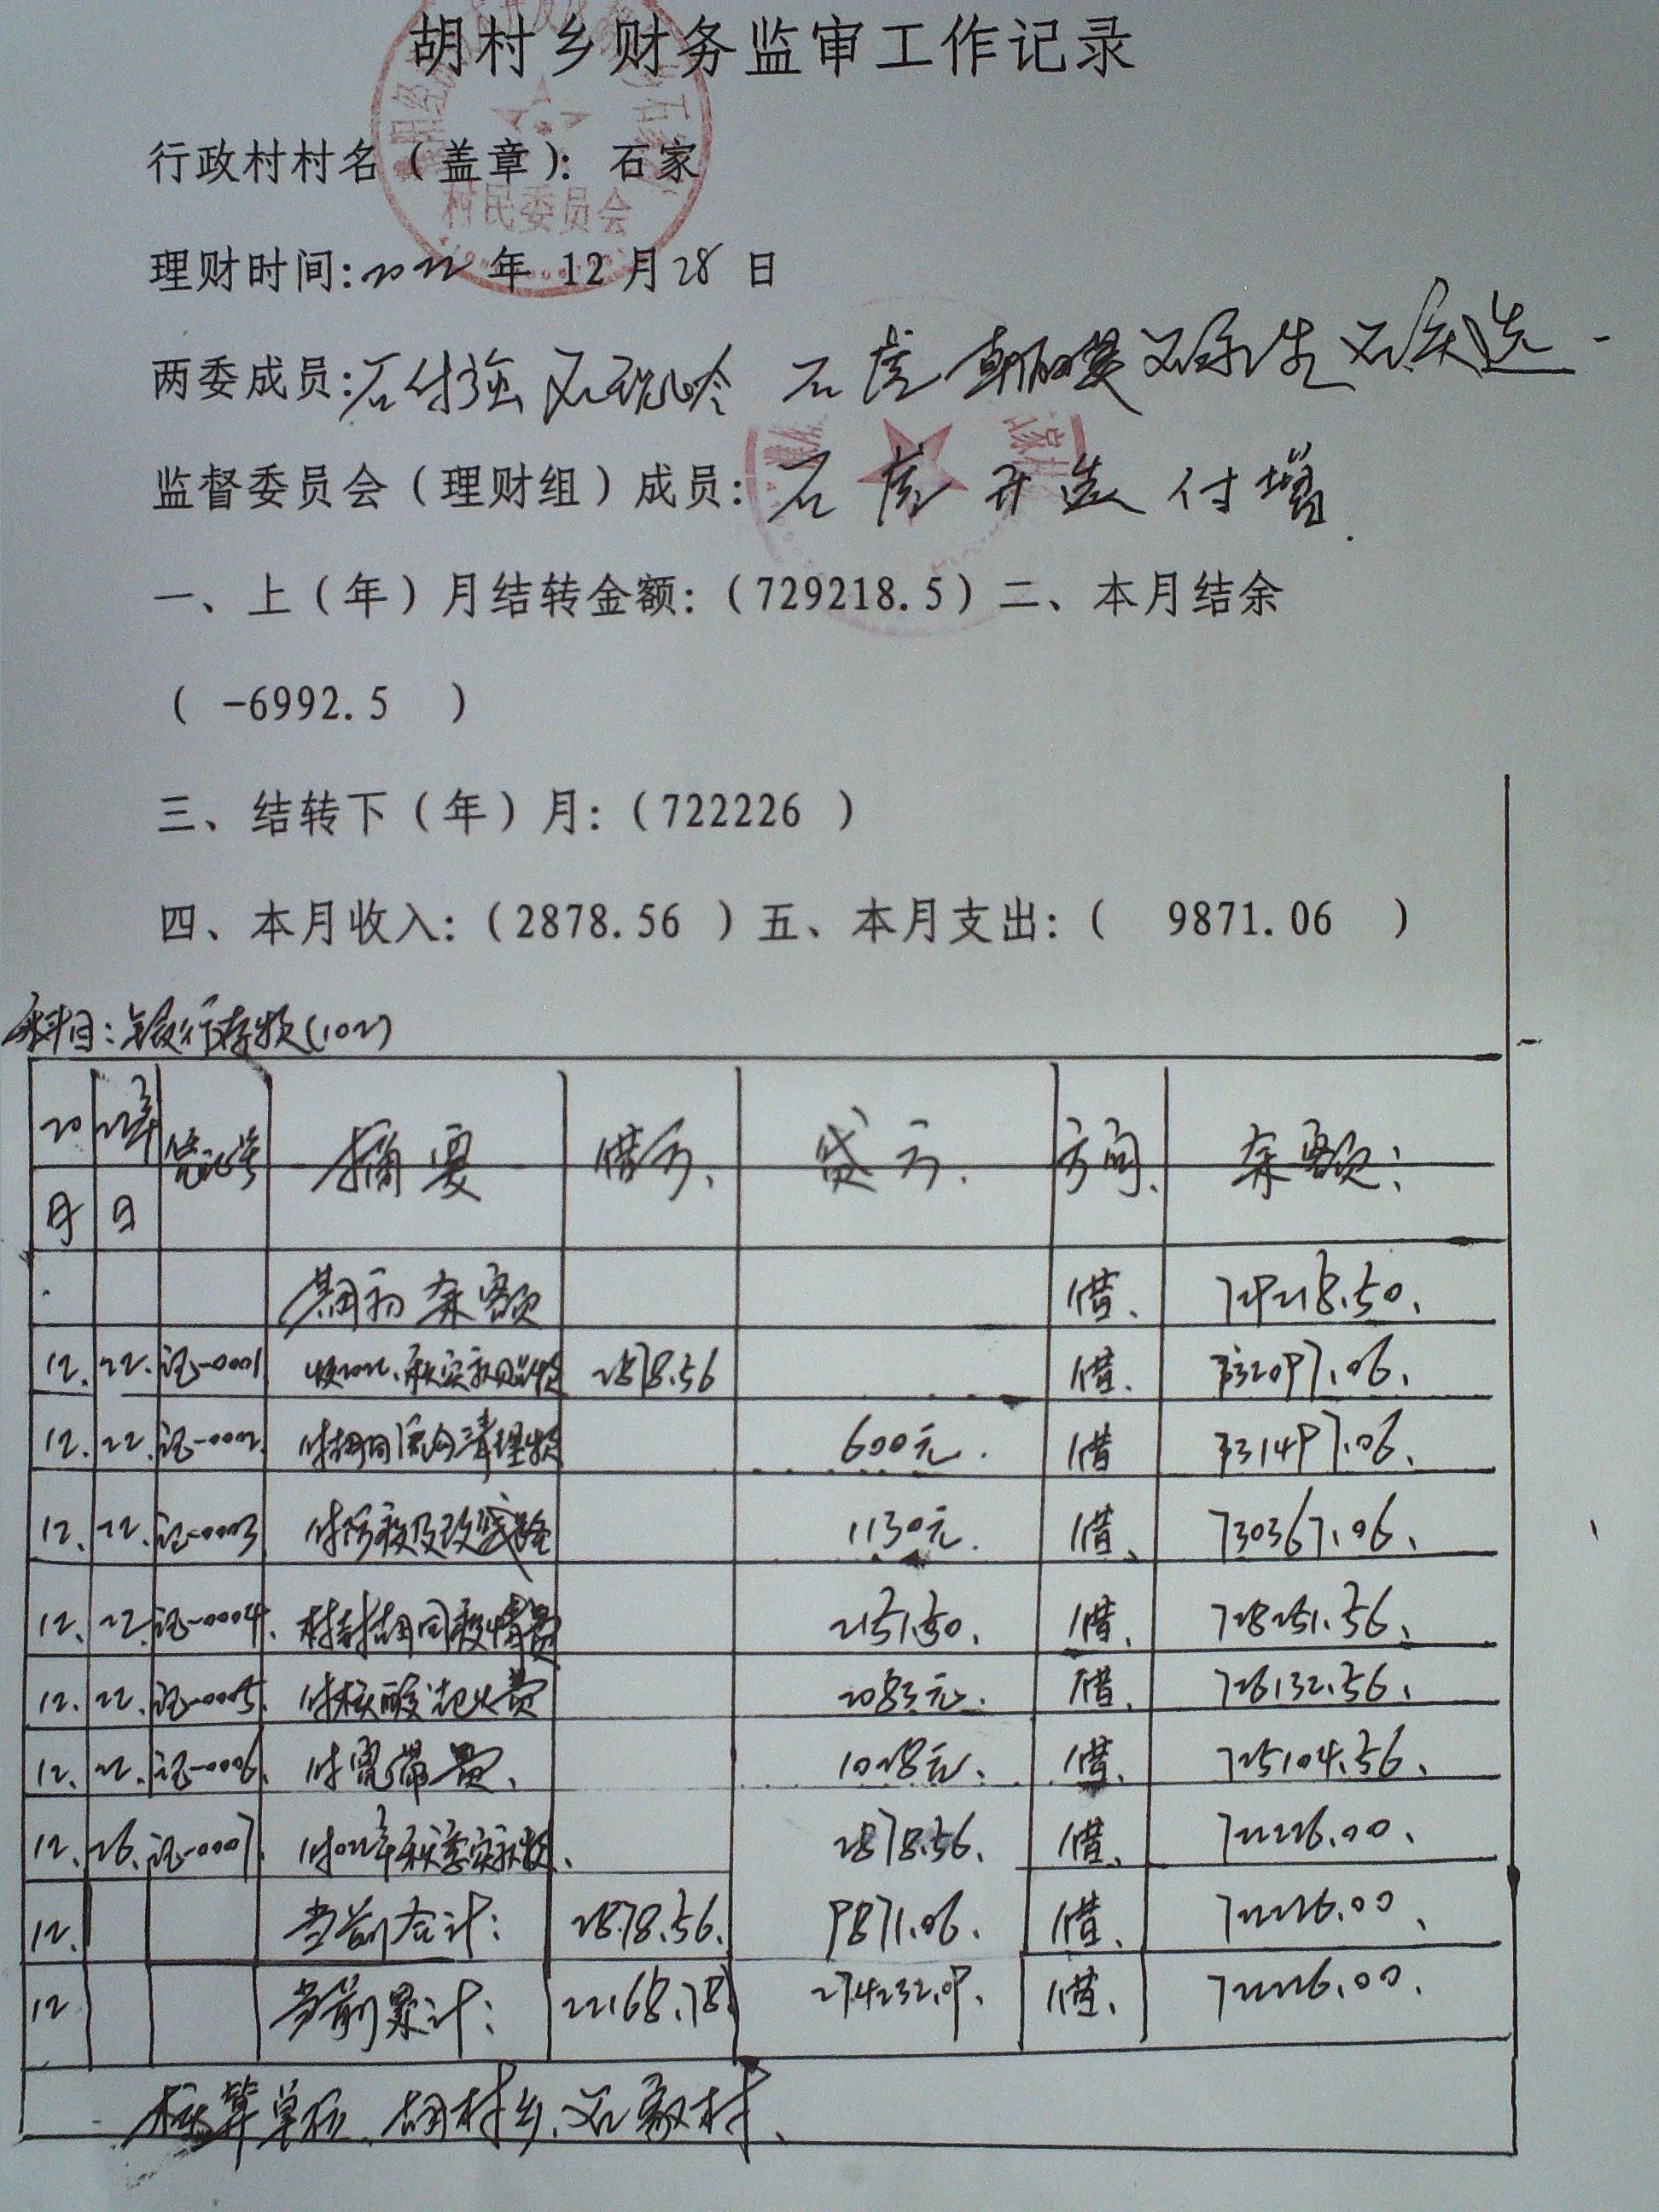 胡村乡财务监审工作记录
行政村村名（盖章）：石家
村民委员会
理财时间:2022年 12月28日
两委成员:石付强 石 石虎
监督委员会（理财组）成员: 石虎 开选 付增
一、上（年）月结转金额:（729218.5）二、本月结余
（ -6992.5 ）
三、结转下（年）月:（722226 ）
四、本月收入:（2878.56 ）五、本月支出:（ 9871.06 ）
科目:银行存款(102)
2022年 凭证号 摘要 借方、 贷方. 方向、 余额:
月 日
期初余额 借、 729218.50、
12. 22. 记-0001 收2022. 2878.56 借. 732097.06、
12. 22. 记-0002 付胡同 清理款 600元. 借 731497.06、
12. 22. 记-0003 付防疫及 1130元. 借、 730367.06、
12. 22. 记-0004. 村封胡同疫情费 借、 728251.56、
12. 22. 记-0005. 付核酸 费 2083元. 借. 726132.56、
12. 22. 记-0006. 付宽带费、 1028元、 借、 725104.56、
12. 26. 记-0007. 付022年秋季 2878.56、 借、 722226.00、
12. 当前合计: 2878.56. 9871.06. 借、 722226.00、
12 当前累计: 22168.78 274232.09. 借、 722226.00.
核算单位、胡村乡、石家村、